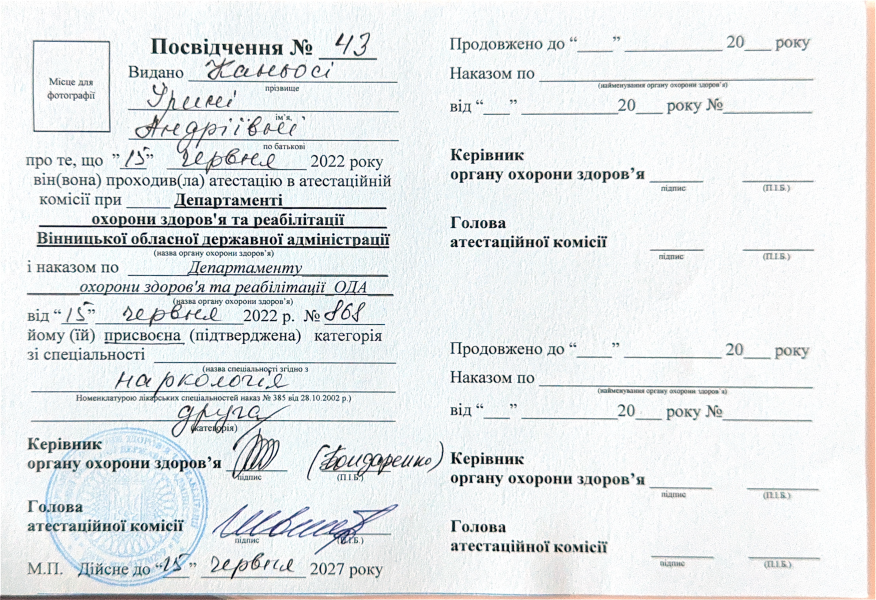 Місце для
фотографії
Посвідчення № 43
Видано Каньосі
прізвище
Ірині
ім'я,
Андріївні
по батькові
про те, що "15" червня 2022 року
він(вона) проходив(ла) атестацію в атестаційній
комісії при Департаменті
охорони здоров'я та реабілітації
Вінницької обласної державної адміністрації
(назва органу охорони здоров'я)
і наказом по Департаменту
охорони здоров'я та реабілітації ОДА
(назва органу охорони здоров'я)
від "15" червня 2022 р. № 868
йому (їй) присвоєна (підтверджена) категорія
зі спеціальності
(назва спеціальності згідно з
наркологія
Номенклатурою лікарських спеціальностей наказ № 385 від 28.10.2002 р.)
друга
(категорія)
Керівник
органу охорони здоров'я (Бондаренко)
підпис (П.І.Б.)
Голова
атестаційної комісії
підпис (П.І.Б.)
М.П. Дійсне до "15" червня 2027 року
Продовжено до "____" ____ 20___ року
Наказом по
(найменування органу охорони здоров'я)
від "___" ____20___ року №____
Керівник
органу охорони здоров'я
підпис (П.І.Б.)
Голова
атестаційної комісії
підпис (П.І.Б.)
Продовжено до "____" ____ 20___ року
Наказом по
(найменування органу охорони здоров'я)
від "___" ____20___ року №____
Керівник
органу охорони здоров'я
підпис (П.І.Б.)
Голова
атестаційної комісії
підпис (П.І.Б.)